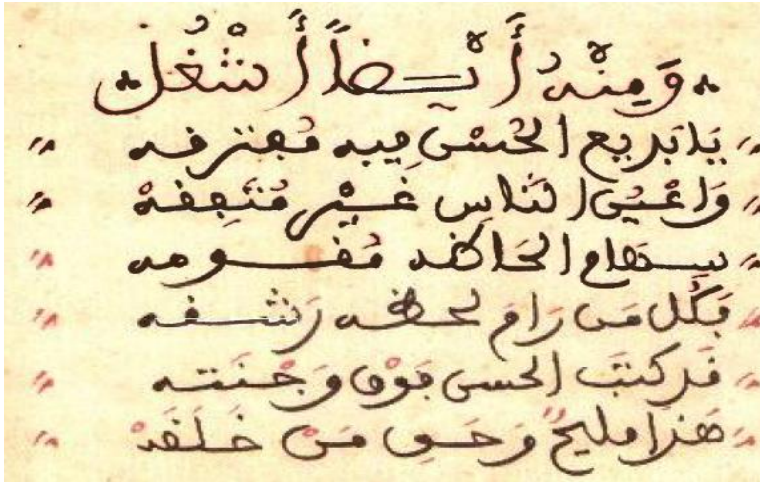 وَمِنْهُ أَيْضاً أَشْغُل
يَا بَدِيع الحُسْنِ فِيه مُفترقه
وَاعْيُن النَّاسِ غَيْر مُتَّفِقهْ
سهام الحَاظه مُفَوقه
فَكُل مَن رَامَ لحظه رَشقه
قَد كتبَ الحسن فَوْق وَجْنَته
هَذا مليحٌ وَحَقِ مَنْ خَلَقَهْ